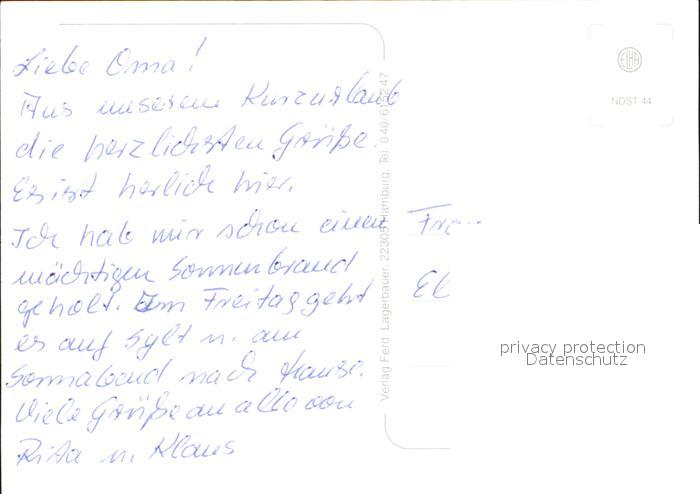 Liebe Oma!
Aus unserem Kurzurlaub
die herzlichsten Grüße.
Es ist herlich hier.
Ich hab mir schon einen
mächtigen Sonnenbrand
geholt. Am Freitag geht
es auf Sylt u. am
Sonnabend nach Hause.
Viele Grüße an alle von
Rita u. Klaus
Verlag Ferd. Lagerbauer, 22305 Hamburg, Tel.
ELHA
NDST 44
Fra
El
privacy protection
Datenschutz